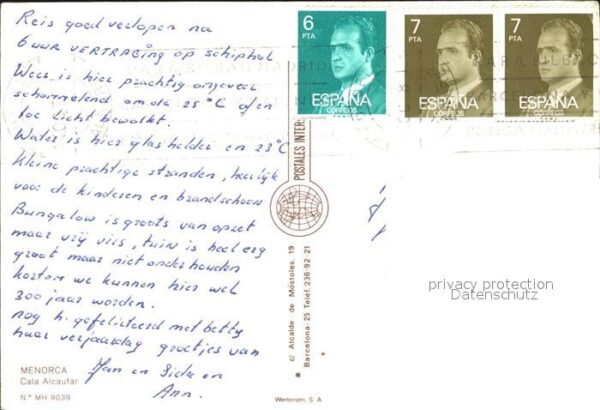 Reis goed verlopen na
6 uur VERTRAGING op schiphol
Weer is hier prachtig ongeveer
schommelend om de 25°C af en
toe licht bewolkt.
Water is hier glashelder en 23°C
Kleine prachtige stranden, heerlijk
voor de kinderen en brandschoon
Bungalow is groots van opzet
maar vrij vies, tuin is heel erg
groot maar niet onderhouden
kortom we kunnen hier wel
300 jaar worden.
nog h. gefeliciteerd met betty
haar verjaardag groetjes van
Jan en en
Ann.
MENORCA
Cala Alcaufar
N.° MH 9039
6
PTA
ESPAÑA
CORREOS
7
PTA
ESPAÑA
CORREOS
7
PTA
ESPAÑA
CORREOS
POSTALES INTER
c/ Alcalde de Móstoles, 19
Barcelona-25 Telef. 236-92-21
privacy protection
Datenschutz